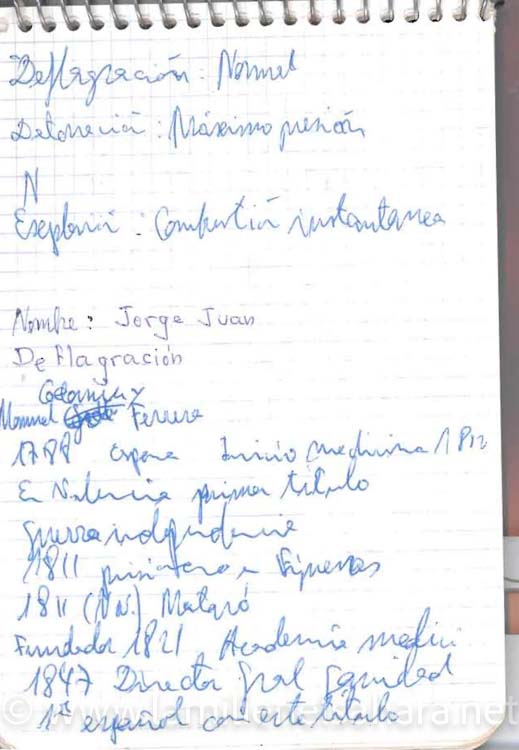 Deflagración: Normal
Detonación: Máximo presión
N
Explosión: Combustión instantanea
Nombre: Jorge Juan
Deflagración
Codorniu y
Manuel Ferrera
1788 Inicio medicina 1812
En Valencia primer título
guerra independencia
1811 prisionero Figueras
1811 (NN.) Mataró
Fundador 1821 Academia medici
1847 Director Gral Sanidad
1er español con este título
© www.lamilletdelsahara.net